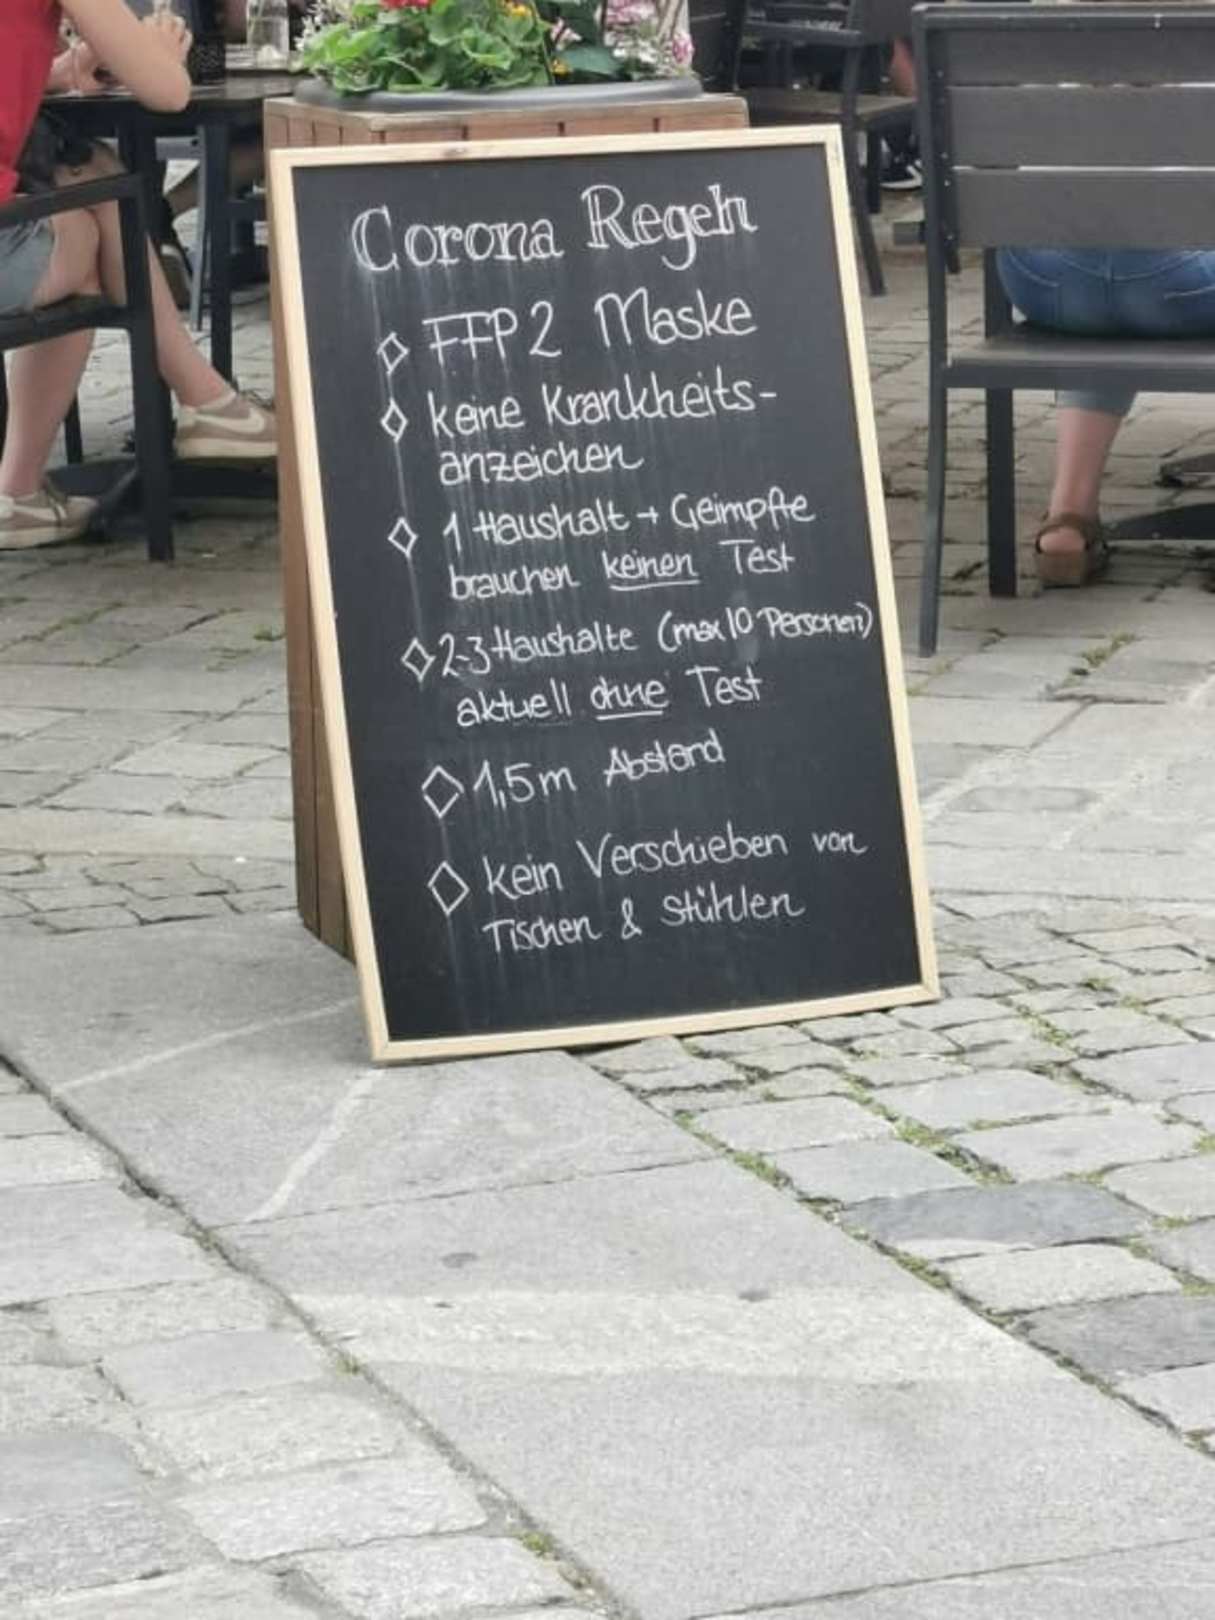 Corona Regeln
FFP2 Maske
keine Krankheits-
anzeichen
1 Haushalt + Geimpfte
brauchen keinen Test
2-3 Haushalte (max 10 Personen)
aktuell ohne Test
1,5m Abstand
kein Verschieben von
Tischen & Stühlen